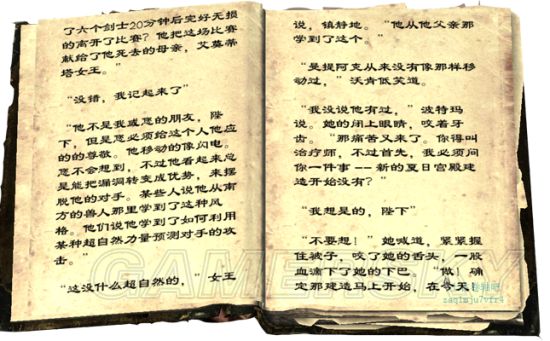 了六个剑士20分钟后完好无损
的离开了比赛?他把这场比赛
献给了他死去的母亲,艾莫蒂
塔女王。"
"没错,我记起来了"
"他不是我或您的朋友,陛
下,但是您必须给这个人他应
的的尊敬。他移动的像闪电。
您不会想到,不过他看起来总
是能把漏洞转变成优势,来摆
脱他的对手。某些人说他从南
方的兽人那里学到了这种风
格。他们说他学到了如何利用
某种超自然力量预测对手的攻
击。"
"这没什么超自然的,"女王
说,镇静地。"他从他父亲那
学到了这个。"
"曼提阿克从来没有像那样移
动过,"沃肯低笑道。
"我没说他有过,"波特玛
说。她的闭上眼睛,咬着牙
齿。"那痛苦又来了。你得叫
治疗师,不过首先,我必须问
你一件事--新的夏日宫殿建
造开始没有?"
"我想是的,陛下"
"不要想!"她喊道,紧紧握
住被子,咬了她的舌头,一股
血滴下了她的下巴。"做!确
定那建造马上开始,在今天
GAMERSKY
zaqlmju7vfr4